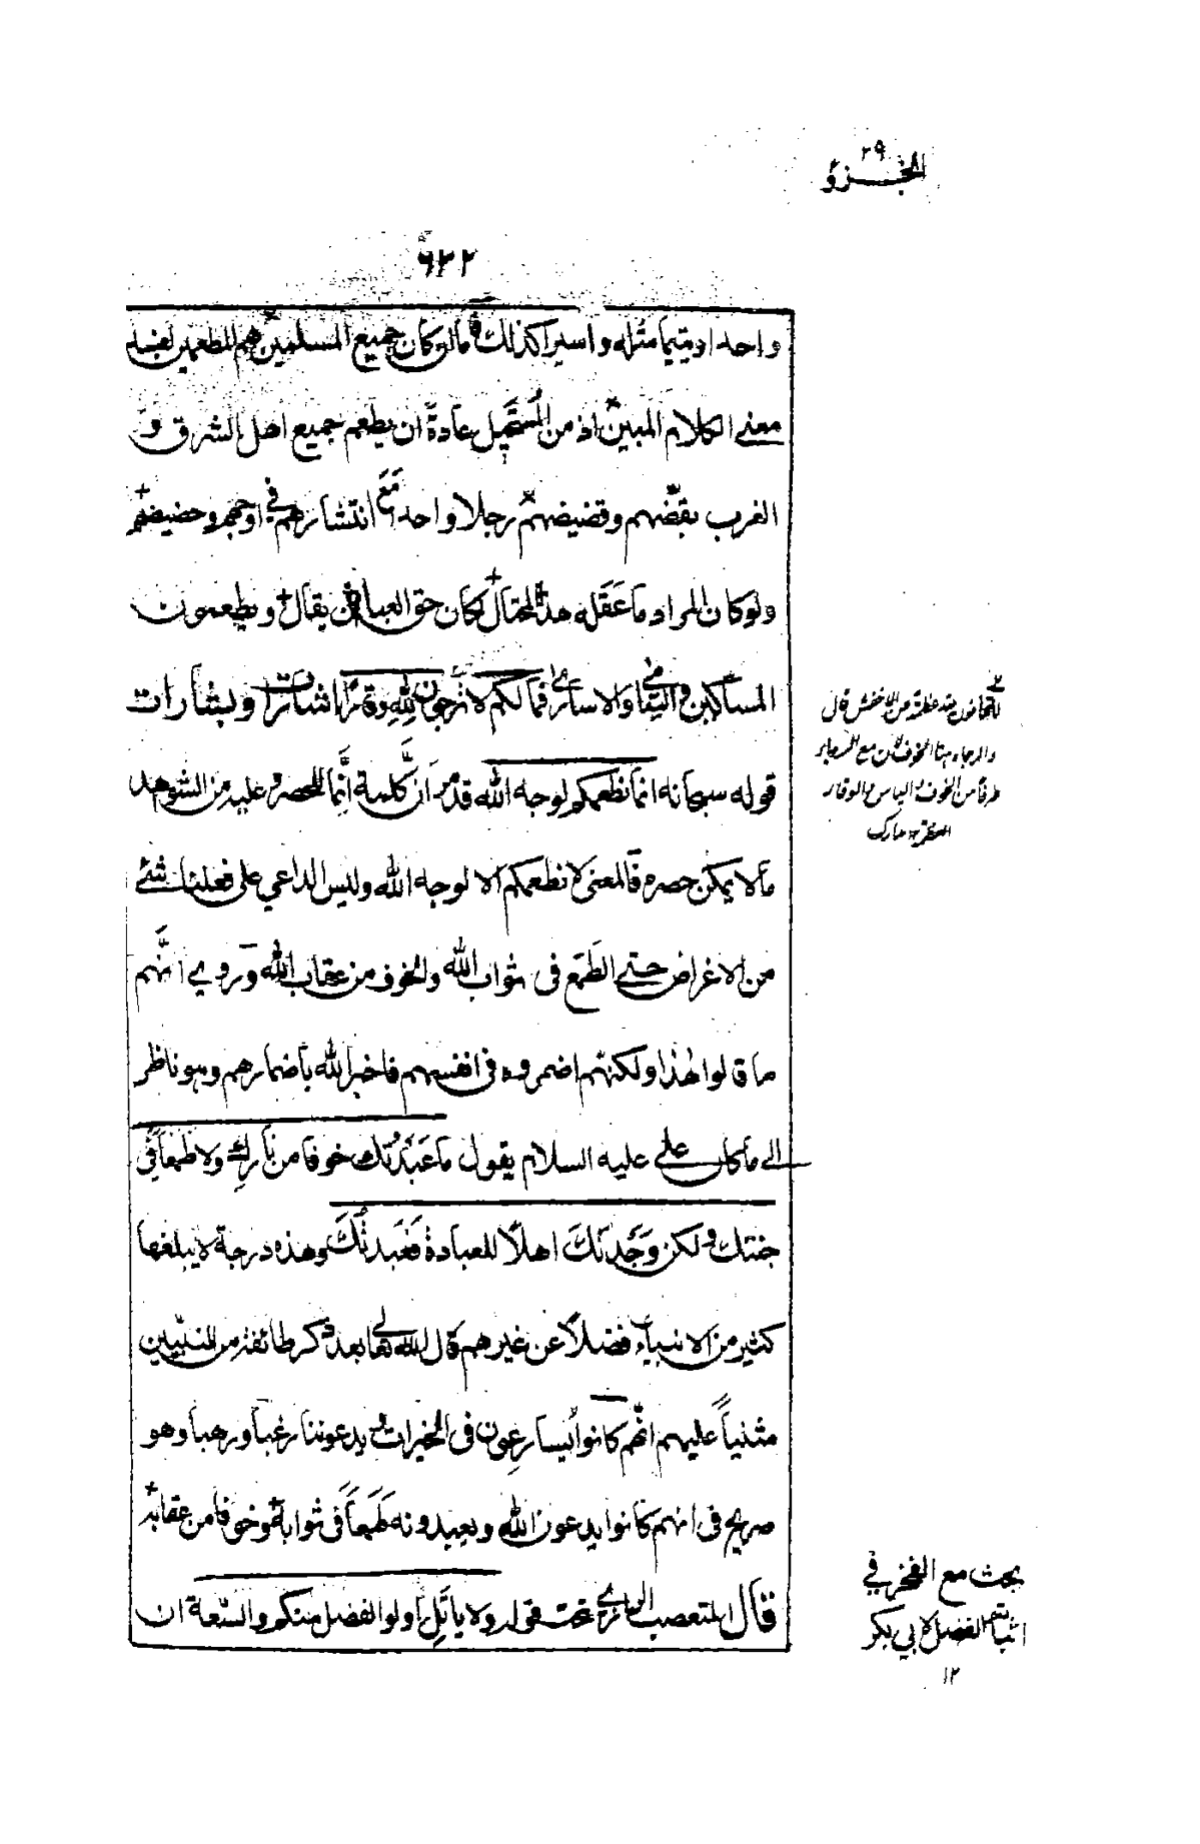 الجزو ٢٩
٦٢٢
واحدا ويتيما مثله واسيرا كذلك فما لو كان جميع المسلمين هم المطعمين لفسد
معنى الكلام المبين اذ من المستحيل عادة ان يطعم جميع اهل الشرق و
الغرب بقضهم وقضيضهم رجلا واحدا مع انتشارهم في اوجهم وحضيضهم
ولو كان المراد ما عقله هذا المحتال لكان حق العبارة ان يقال ويطعمون
المساكين واليتامى والاسارى فما لكم لا ترجون لله وقارا اشارات وبشارات
قوله سبحانه انما نطعمكم لوجه الله قد مر ان كلمة انما للحصر وعليه من الشواهد
ما لا يمكن حصره فالمعنى لا نطعمكم الا لوجه الله وليس الداعي على فعلنا شئ
من الاغراض حتى الطمع فى ثواب الله والخوف من عقاب الله وروي انهم
ما قالوا هذا ولكنهم اضمروه فى انفسهم فاخبر الله باضمارهم وهو ناظر
الى ما كان علي عليه السلام يقول ما عبدتك خوفا من نارك ولا طمعا في
جنتك ولكن وجدتك اهلا للعبادة فعبدتك وهذه درجة لا يبلغها
كثير من الانبياء فضلا عن غيرهم قال الله تعالى بعد ذكر طائفة من النبيين
مثنيا عليهم انهم كانوا يسارعون فى الخيرات و يدعوننا رغبا ورهبا وهو
صريح فى انهم كانوا يدعون الله ويعبدونه طمعا في ثوابه وخوفا من عقابه
قال المتعصب الرازي تحت قوله ولا ياتل اولوا الفضل منكم والسعة ان
والرجاء هنا الخوف لان مع الرجاء
طرفا من الخوف و الياس والوقار
العظمة مدارك
بحث مع الفخر في
اثباته الفضل لابي بكر
١٢